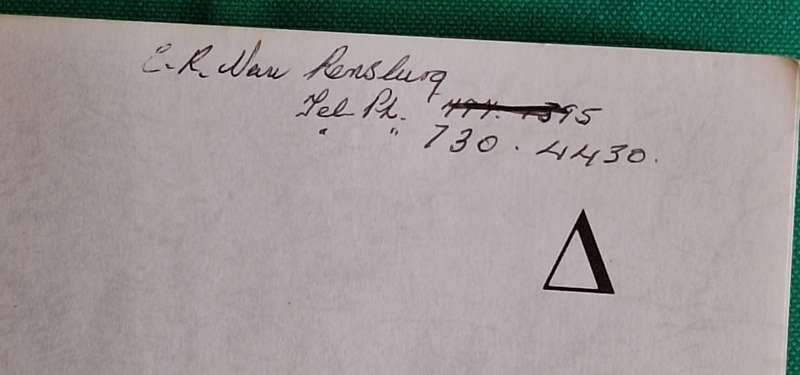 C.R. Van Rensburg
Tel Ph. 
" " 730.4430.
Δ